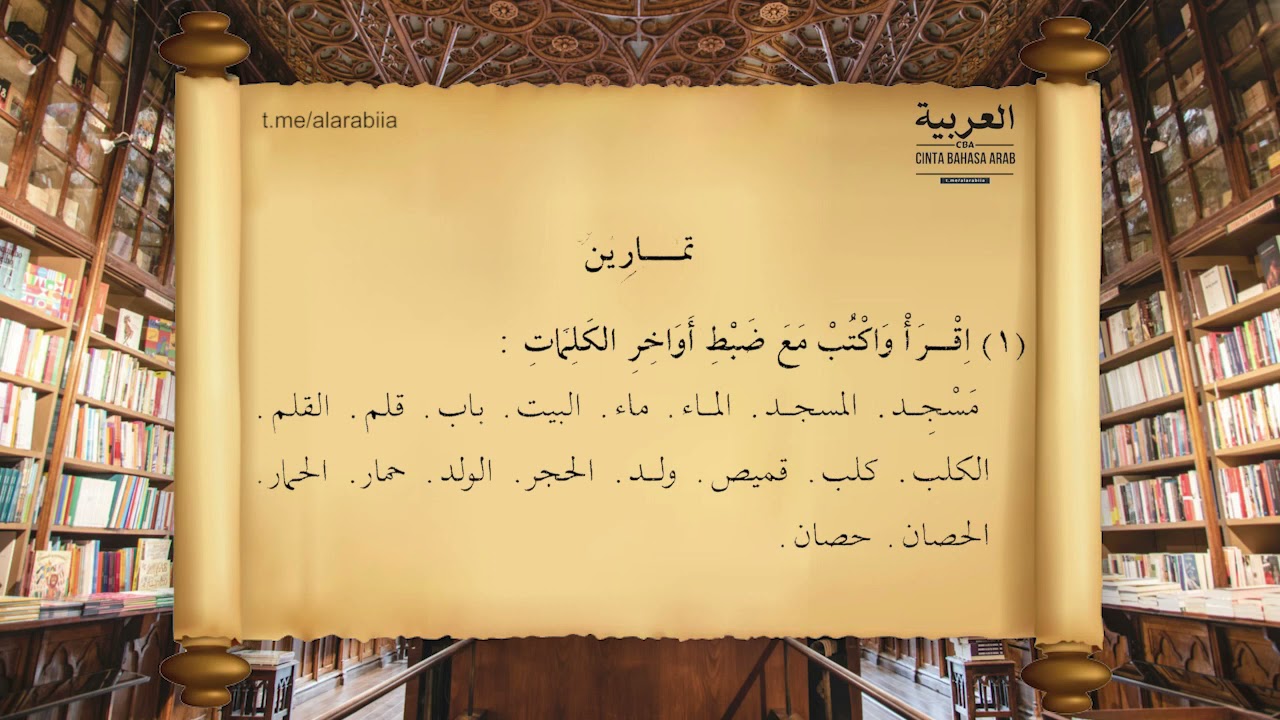 t.me/alarabiia
العربية
CBA
CINTA BAHASA ARAB
t.me/alarabiia
تمـــارِين
(١) اِقْـــرَأْ وَاكْتُبْ مَعَ ضَبْطِ أَوَاخِرِ الكَلِمَاتِ :
مَسْجِـد. المسجـد. المـاء. ماء. البيت. باب. قلم. القلم.
الكلب. كلب. قميص. ولـد. الحجر. الولد. حمار. الحمار.
الحصان. حصان.